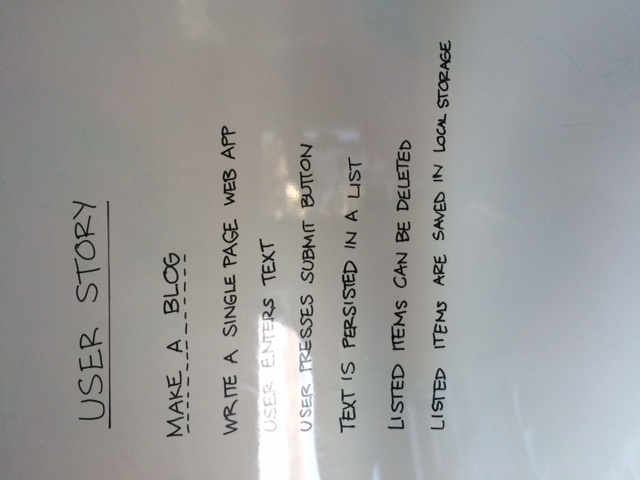 USER STORY
MAKE A BLOG
WRITE A SINGLE PAGE WEB APP
USER ENTERS TEXT
USER PRESSES SUBMIT BUTTON
TEXT IS PERSISTED IN A LIST
LISTED ITEMS CAN BE DELETED
LISTED ITEMS ARE SAVED IN LOCAL STORAGE